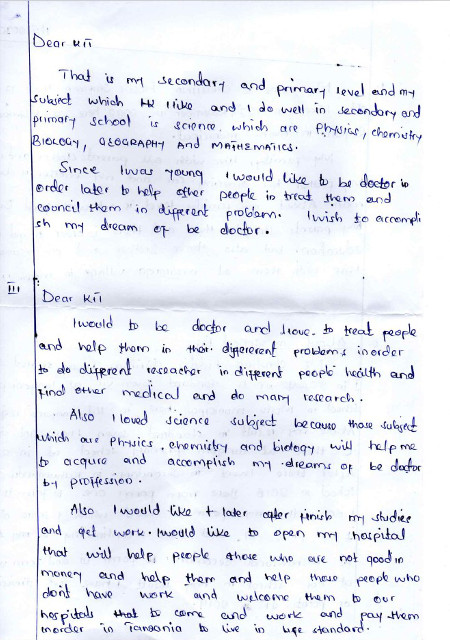 Dear KiT
That is my secondary and primary level and my
subject which I like and I do well in secondary and
primary school is science, which are Physics, chemistry
BIOLOGY, GEOGRAPHY AND MATHEMATICS.
Since I was young I would like to be doctor in
order later to help other people in treat them and
council them in different problem. I wish to accompli
sh my dream of be doctor.
III
Dear KiT
I would to be doctor and love to treat people
and help them in their differerent problems inorder
to do different reseacher in different people health and
find other medical and do many research.
Also I loved science subject because those subject
which are physics, chemistry and biology will help me
to acqure and accomplish my dreams of be doctor
by proffession.
Also I would like t later after finish my studies
and get work. I would like to open my hospital
that will help, people those who are not good in
money and help them and help those people who
dont have work and welcome them to our
hospitals that to come and work and pay them
inorder in Tanzania to live in life standard.